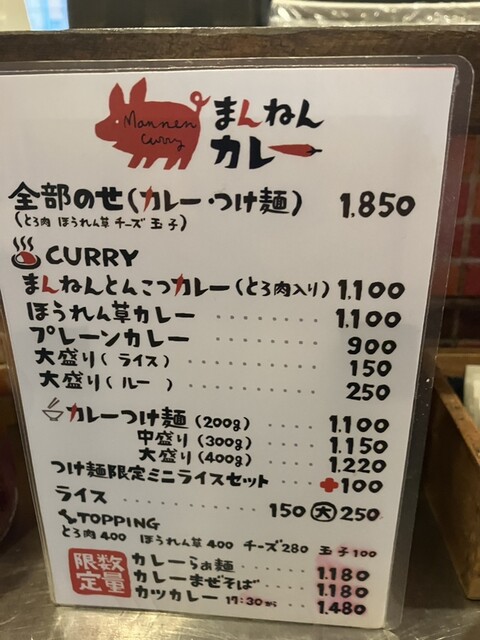 Mannen Curry
まんねん
カレー
全部のせ(カレー・つけ麺) 1,850
(とろ肉 ほうれん草 チーズ 玉子)
CURRY
まんねんとんこつカレー(とろ肉入り) 1,100
ほうれん草カレー ········ 1,100
プレーンカレー ········ 900
大盛り(ライス) ········ 150
大盛り(ルー) ········ 250
カレーつけ麺(200g) ···· 1,100
中盛り(300g) ···· 1,150
大盛り(400g) ···· 1,220
つけ麺限定ミニライスセット ··· +100
ライス ········ 150 大 250
TOPPING
とろ肉400 ほうれん草400 チーズ280 玉子100
数量限定
カレーらぁ麺 ···· 1,180
カレーまぜそば ···· 1,180
カツカレー 17:30から 1,480